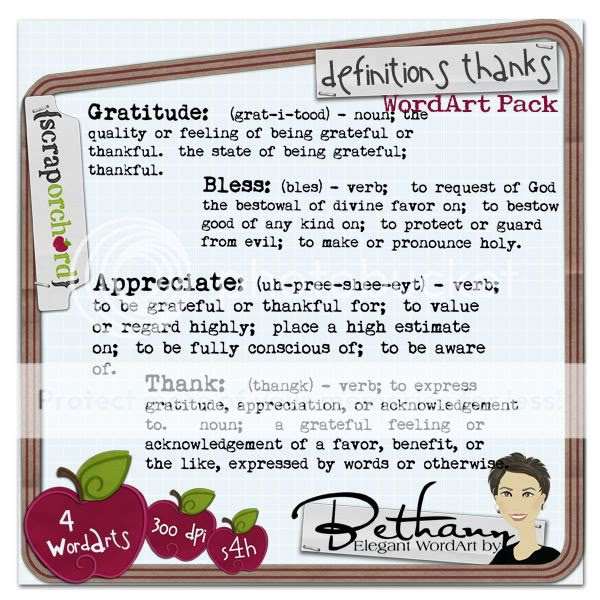 definitions thanks
WordArt Pack
{scraporchard}
Gratitude: (grat-i-tood) - noun; the
quality or feeling of being grateful or
thankful. the state of being grateful;
thankful.
Bless: (bles) - verb; to request of God
the bestowal of divine favor on; to bestow
good of any kind on; to protect or guard
from evil; to make or pronounce holy.
Appreciate: (uh-pree-shee-eyt) - verb;
to be grateful or thankful for; to value
or regard highly; place a high estimate
on; to be fully conscious of; to be aware
of.
Thank: (thangk) - verb; to express
gratitude, appreciation, or acknowledgement
to. noun; a grateful feeling or
acknowledgement of a favor, benefit, or
the like, expressed by words or otherwise.
4
WordArts
300 dpi
s4h
Bethany
Elegant WordArt by